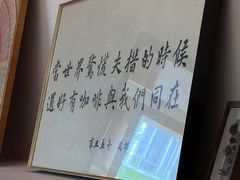 當世界驚慌失措的時候
還好有咖啡與我們同在